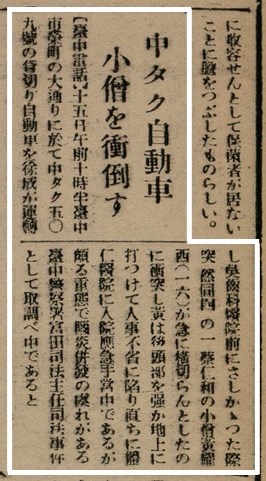 に收容せんとして保菌者が居ない
ことに膽をつぶしたものらしい。
中タク自動車
小僧を衝倒す
【臺中電話】十五日午前十時半臺中
市榮町の大通りに於て中タク五〇
九號の貸切り自動車を徐成が運轉
し吳齒科醫院前にさしかゝつた際
突然同四の一蔡仁和の小僧黃耀
西(一六)が急に橫切らんとしたの
に衝突し黃は後頭部を强か地上に
打つけて人事不省に陷り直ちに
仁醫院に入院應急手當中であるが
頗る重態で腦炎併發の虞れがある
臺中警察署宮田司法主任司法事件
として取調べ中であると